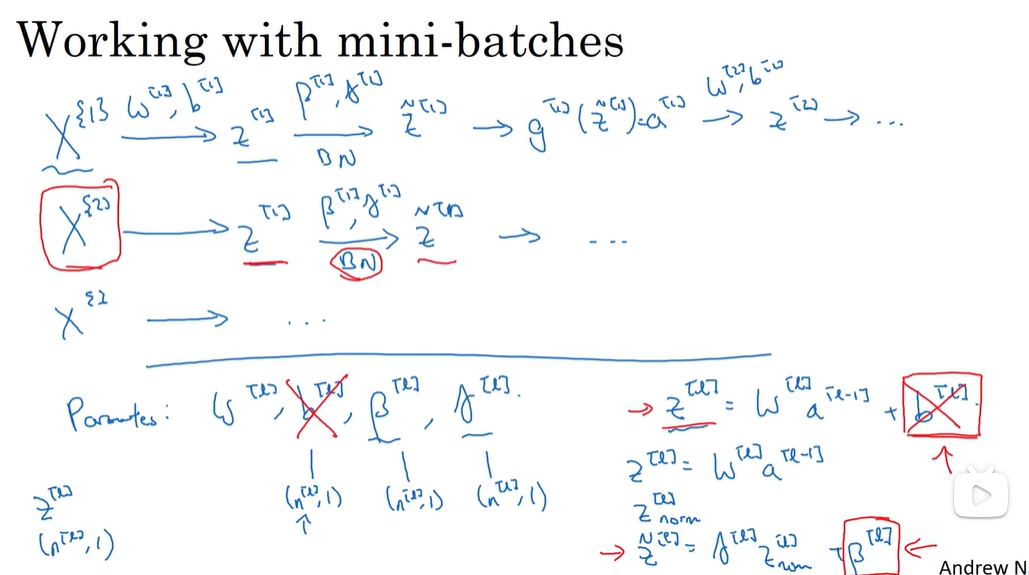 Working with mini-batches
X^{1} W^[1], b^[1] → z^[1] β^[1], γ^[1] → BN z̃^[1] → g^[1](z̃^[1]) = a^[1] W^[2], b^[2] → z^[2] → ...
X^{2} → z^[1] β^[1], γ^[1] → BN z̃^[1] → ...
X^{3} → ...
Parameters: W^[l], b^[l], β^[l], γ^[l].
(n^[l], 1) (n^[l], 1) (n^[l], 1)
z^[l]
(n^[l], 1)
→ z^[l] = W^[l] a^[l-1] + b^[l].
z^[l] = W^[l] a^[l-1]
z^[l] norm
→ z̃^[l] = γ^[l] z^[l] norm + β^[l] ←
Andrew N